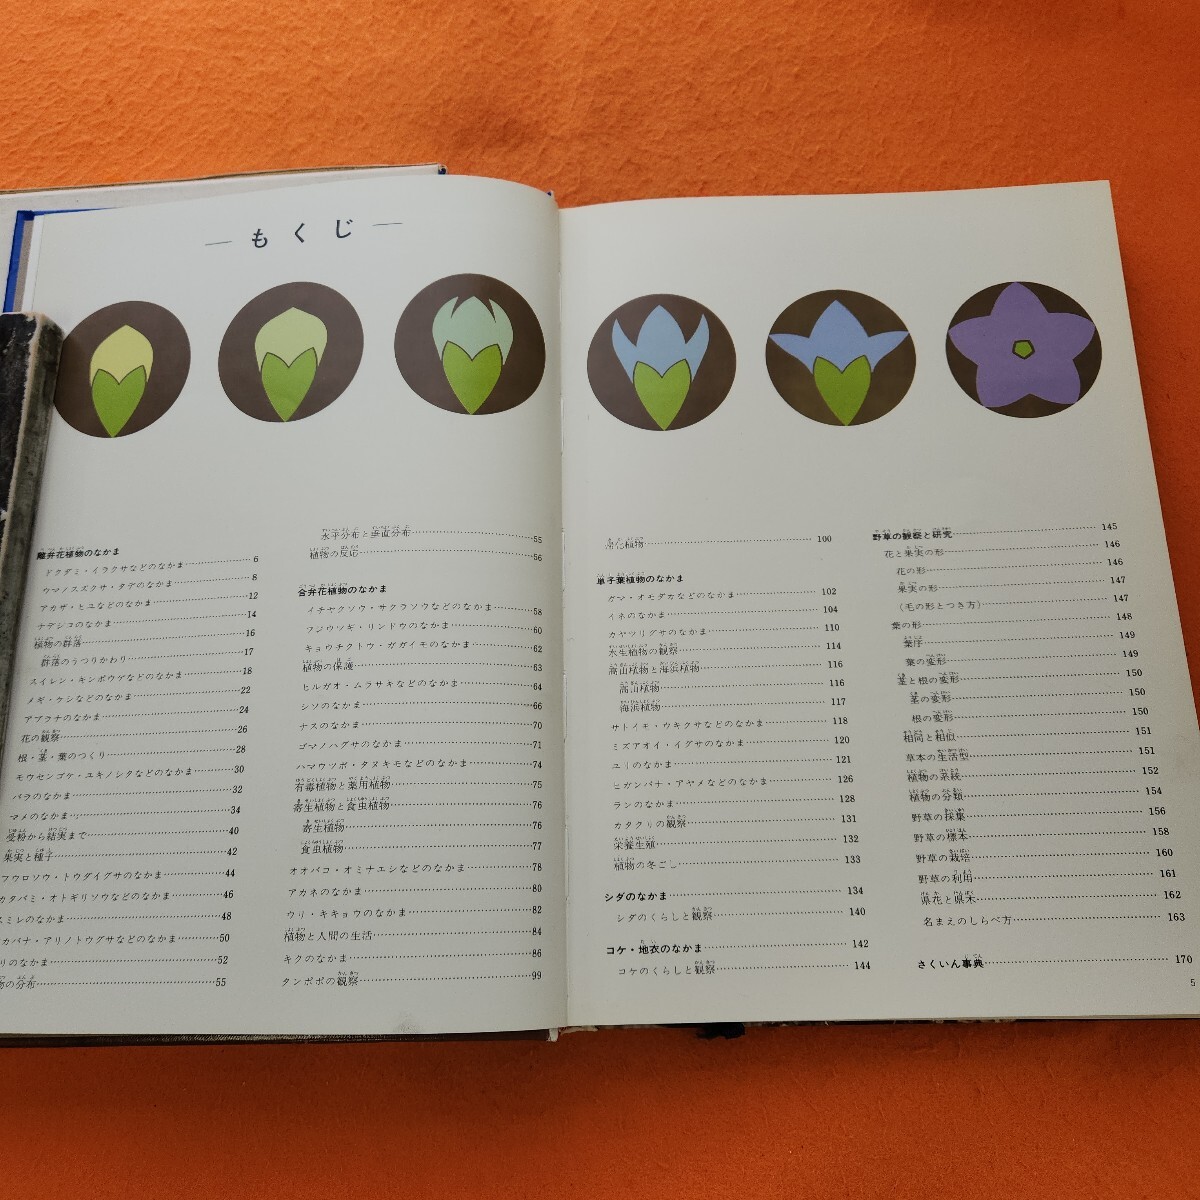 — もくじ —
離弁花植物のなかま
ドクダミ・イラクサなどのなかま 6
ウマノスズクサ・タデのなかま 8
アカザ・ヒユなどのなかま 12
ナデシコのなかま 14
植物の群落 16
群落のうつりかわり 17
スイレン・キンポウゲなどのなかま 18
メギ・ケシなどのなかま 22
アブラナのなかま 24
花の観察 26
根・茎・葉のつくり 28
モウセンゴケ・ユキノシタなどのなかま 30
バラのなかま 32
マメのなかま 34
受粉から結実まで 40
果実と種子 42
フウロソウ・トウダイグサのなかま 44
カタバミ・オトギリソウなどのなかま 46
スミレのなかま 48
カバナ・アリノトウグサなどのなかま 50
りのなかま 52
物の分布 55
水平分布と垂直分布 55
植物の反応 56
合弁花植物のなかま
イチヤクソウ・サクラソウなどのなかま 58
フジウツギ・リンドウのなかま 60
キョウチクトウ・ガガイモのなかま 62
植物の保護 63
ヒルガオ・ムラサキなどのなかま 64
シソのなかま 66
ナスのなかま 70
ゴマノハグサのなかま 71
ハマウツボ・タヌキモなどのなかま 74
有毒植物と薬用植物 75
寄生植物と食虫植物 76
寄生植物 76
食虫植物 77
オオバコ・オミナエシなどのなかま 78
アカネのなかま 80
ウリ・キキョウのなかま 82
植物と人間の生活 84
キクのなかま 86
タンポポの観察 99
帰化植物 100
単子葉植物のなかま
ガマ・オモダカなどのなかま 102
イネのなかま 104
カヤツリグサのなかま 110
水生植物の観察 114
高山植物と海浜植物 116
高山植物 116
海浜植物 117
サトイモ・ウキクサなどのなかま 118
ミズアオイ・イグサのなかま 120
ユリのなかま 121
ヒガンバナ・アヤメなどのなかま 126
ランのなかま 128
カタクリの観察 131
栄養生殖 132
植物の冬ごし 133
シダのなかま 134
シダのくらしと観察 140
コケ・地衣のなかま 142
コケのくらしと観察 144
野草の観察と研究 145
花と果実の形 146
花の形 146
果実の形 147
(毛の形とつき方) 147
葉の形 148
葉序 149
葉の変形 149
茎と根の変形 150
茎の変形 150
根の変形 150
相同と相似 151
草本の生活型 151
植物の系統 152
植物の分類 154
野草の採集 156
野草の標本 158
野草の栽培 160
野草の利用 161
県花と県木 162
名まえのしらべ方 163
さくいん事典 170
5